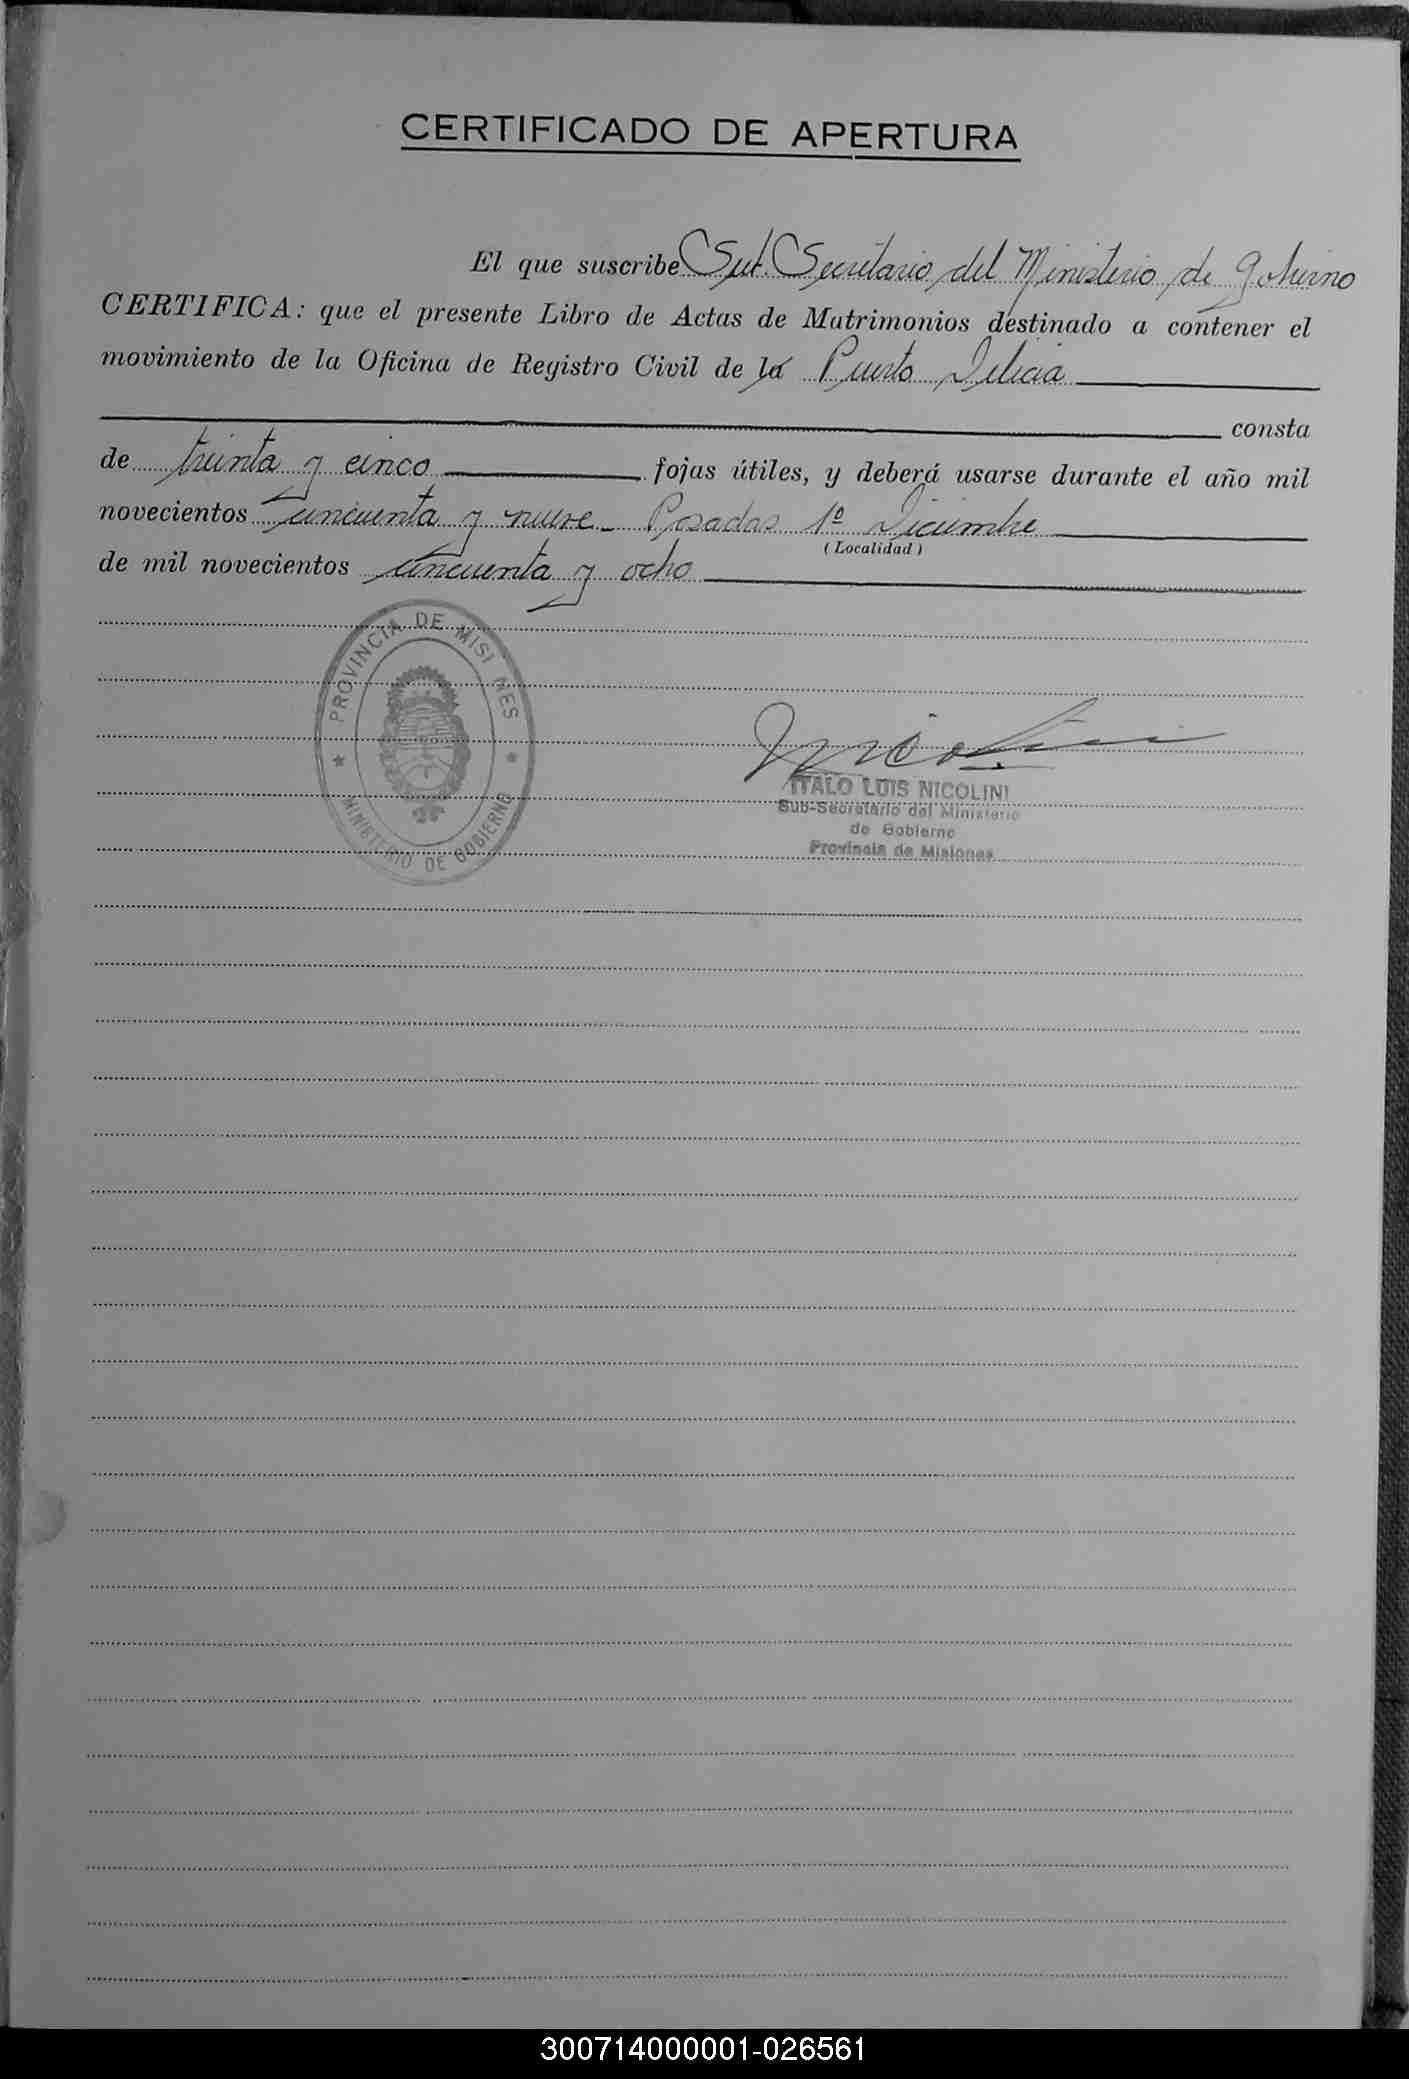 CERTIFICADO DE APERTURA
El que suscribe Sub. Secretario del Ministerio de Gobierno
CERTIFICA: que el presente Libro de Actas de Matrimonios destinado a contener el
movimiento de la Oficina de Registro Civil de la Puerto Delicia
consta
de treinta y cinco fojas útiles, y deberá usarse durante el año mil
novecientos cincuenta y nueve Posadas 1º Diciembre
(Localidad)
de mil novecientos cincuenta y ocho
PROVINCIA DE MISI NES
MINISTERIO DE GOBIERNO
Nicolini
ITALO LUIS NICOLINI
Sub-Secretario del Ministerio
de Gobierno
Provincia de Misiones
300714000001-026561